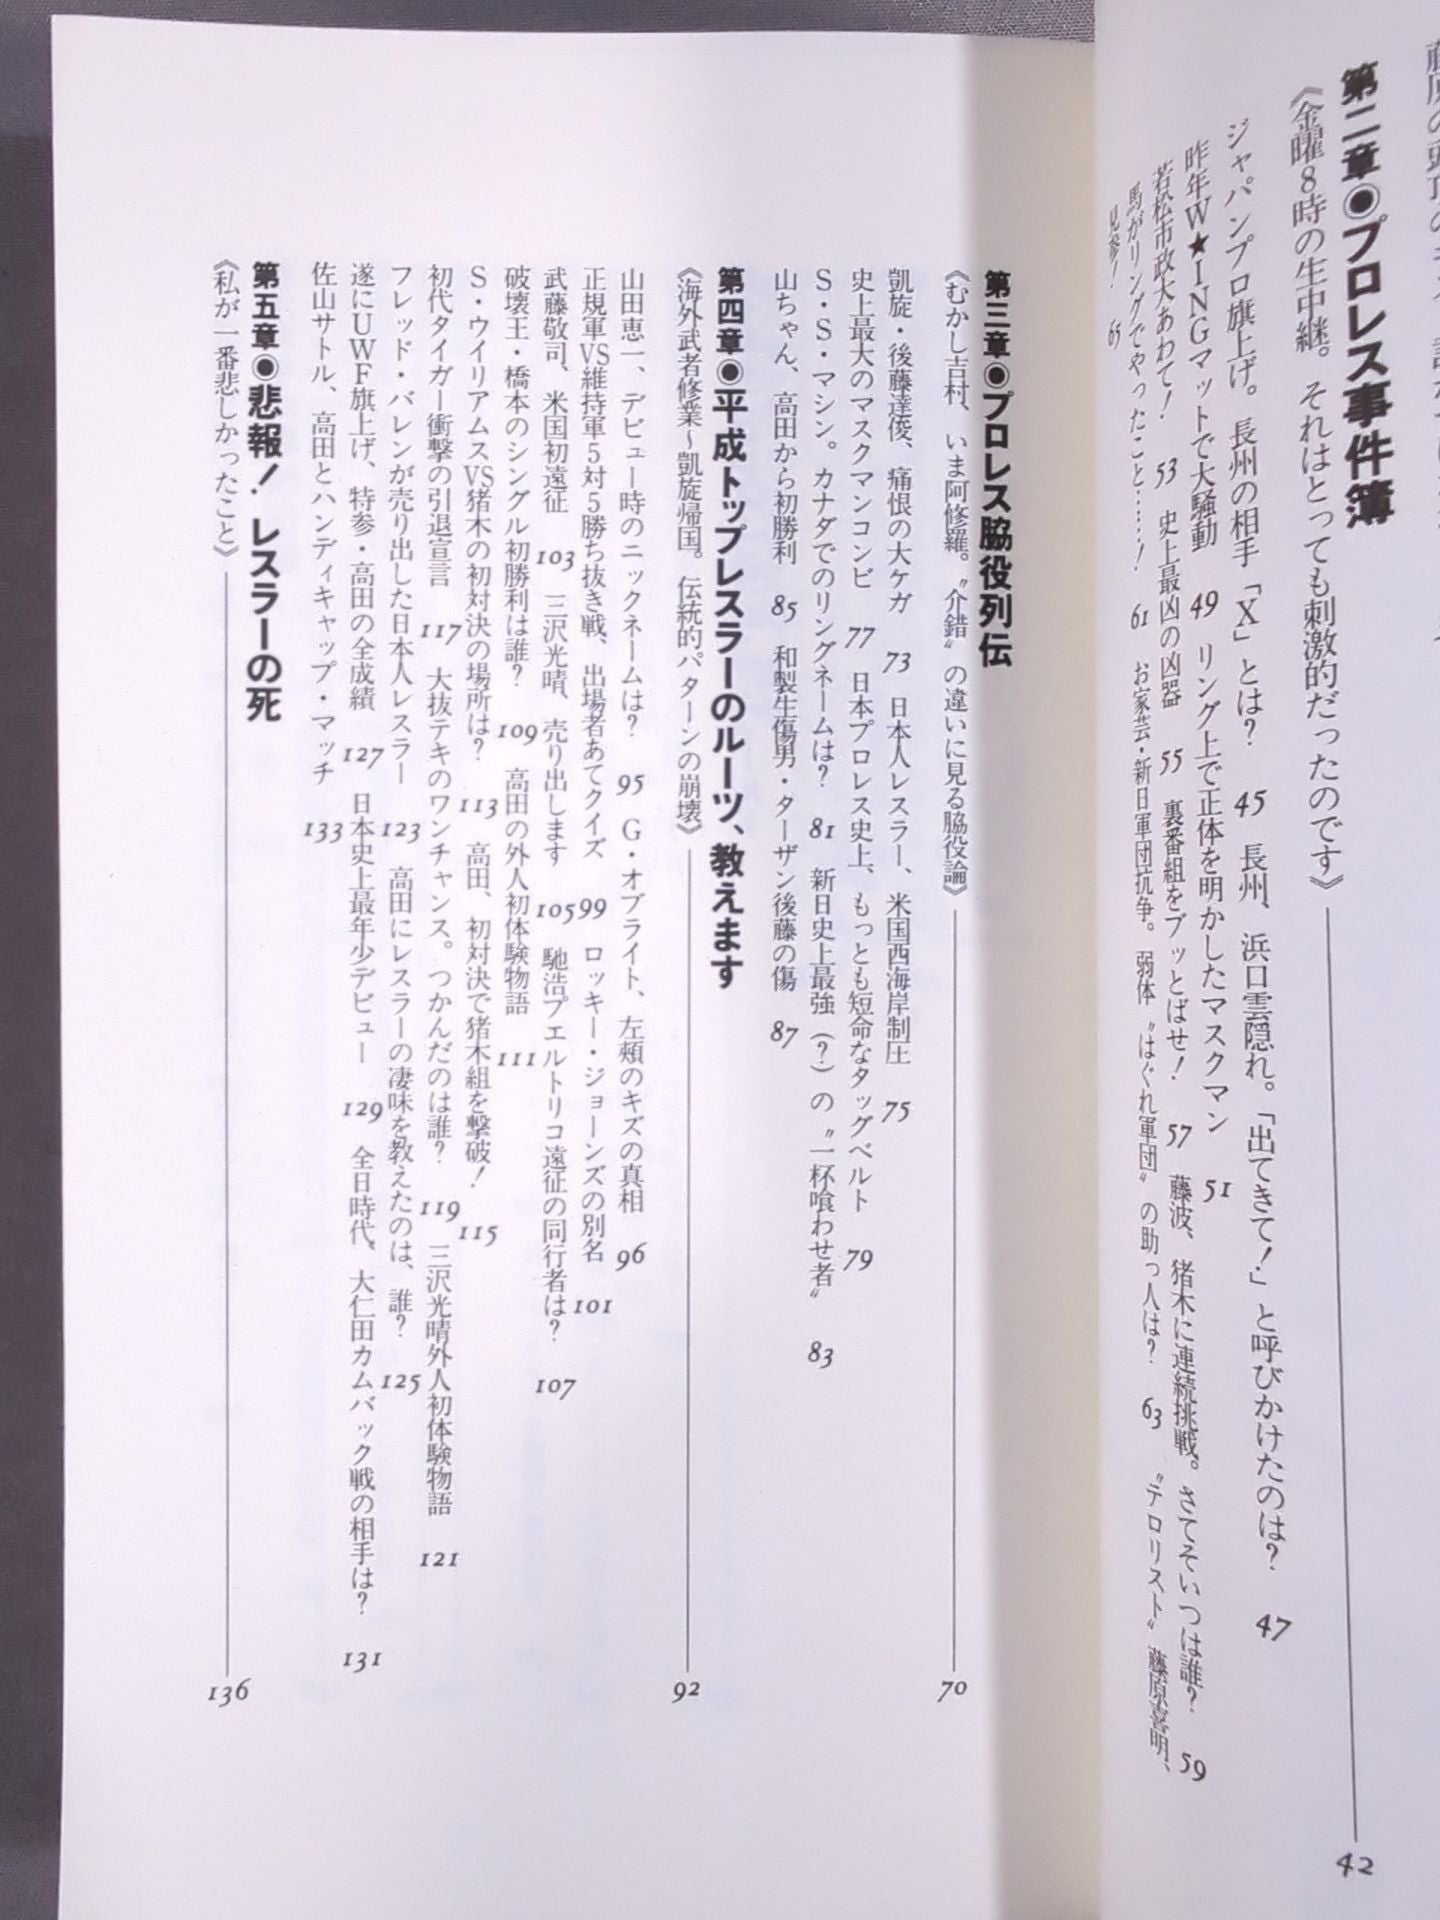 第二章◉プロレス事件簿
《金曜8時の生中継。それはとっても刺激的だったのです》 42
ジャパンプロ旗上げ。長州の相手「X」とは? 45 長州、浜口雲隠れ。「出てきて!」と呼びかけたのは? 47
昨年W★INGマットで大騒動 49 リング上で正体を明かしたマスクマン 51
若松市政大あわて! 53 史上最凶の凶器 55 裏番組をブッとばせ! 57 藤波、猪木に連続挑戦。さてそいつは誰? 59
馬がリングでやったこと……! 61 お家芸・新日軍団抗争。弱体〝はぐれ軍団〟の助っ人は? 63 〝テロリスト〟藤原喜明、
見参! 65
第三章◉プロレス脇役列伝
《むかし吉村、いま阿修羅。〝介錯〟の違いに見る脇役論》 70
凱旋・後藤達俊、痛恨の大ケガ 73 日本人レスラー、米国西海岸制圧 75
史上最大のマスクマンコンビ 77 日本プロレス史上、もっとも短命なタッグベルト 79
S・S・マシン。カナダでのリングネームは? 81 新日史上最強(?)の〝一杯喰わせ者〟 83
山ちゃん、高田から初勝利 85 和製生傷男・ターザン後藤の傷 87
第四章◉平成トップレスラーのルーツ、教えます
《海外武者修業〜凱旋帰国。伝統的パターンの崩壊》 92
山田恵一、デビュー時のニックネームは? 95 G・オブライト、左頰のキズの真相 96
正規軍VS維持軍5対5勝ち抜き戦、出場者あてクイズ 99 ロッキー・ジョーンズの別名 101
武藤敬司、米国初遠征 103 三沢光晴、売り出します 105 馳浩プエルトリコ遠征の同行者は? 107
破壊王・橋本のシングル初勝利は誰? 109 高田の外人初体験物語 111
S・ウイリアムスVS猪木の初対決の場所は? 113 高田、初対決で猪木組を撃破! 115
初代タイガー衝撃の引退宣言 117 大抜テキのワンチャンス。つかんだのは誰? 119 三沢光晴外人初体験物語 121
フレッド・バレンが売り出した日本人レスラー 123 高田にレスラーの凄味を教えたのは、誰? 125
遂にUWF旗上げ、特参・高田の全成績 127 日本史上最年少デビュー 129 全日時代、大仁田カムバック戦の相手は? 131
佐山サトル、高田とハンディキャップ・マッチ 133
第五章◉悲報! レスラーの死
《私が一番悲しかったこと》 136